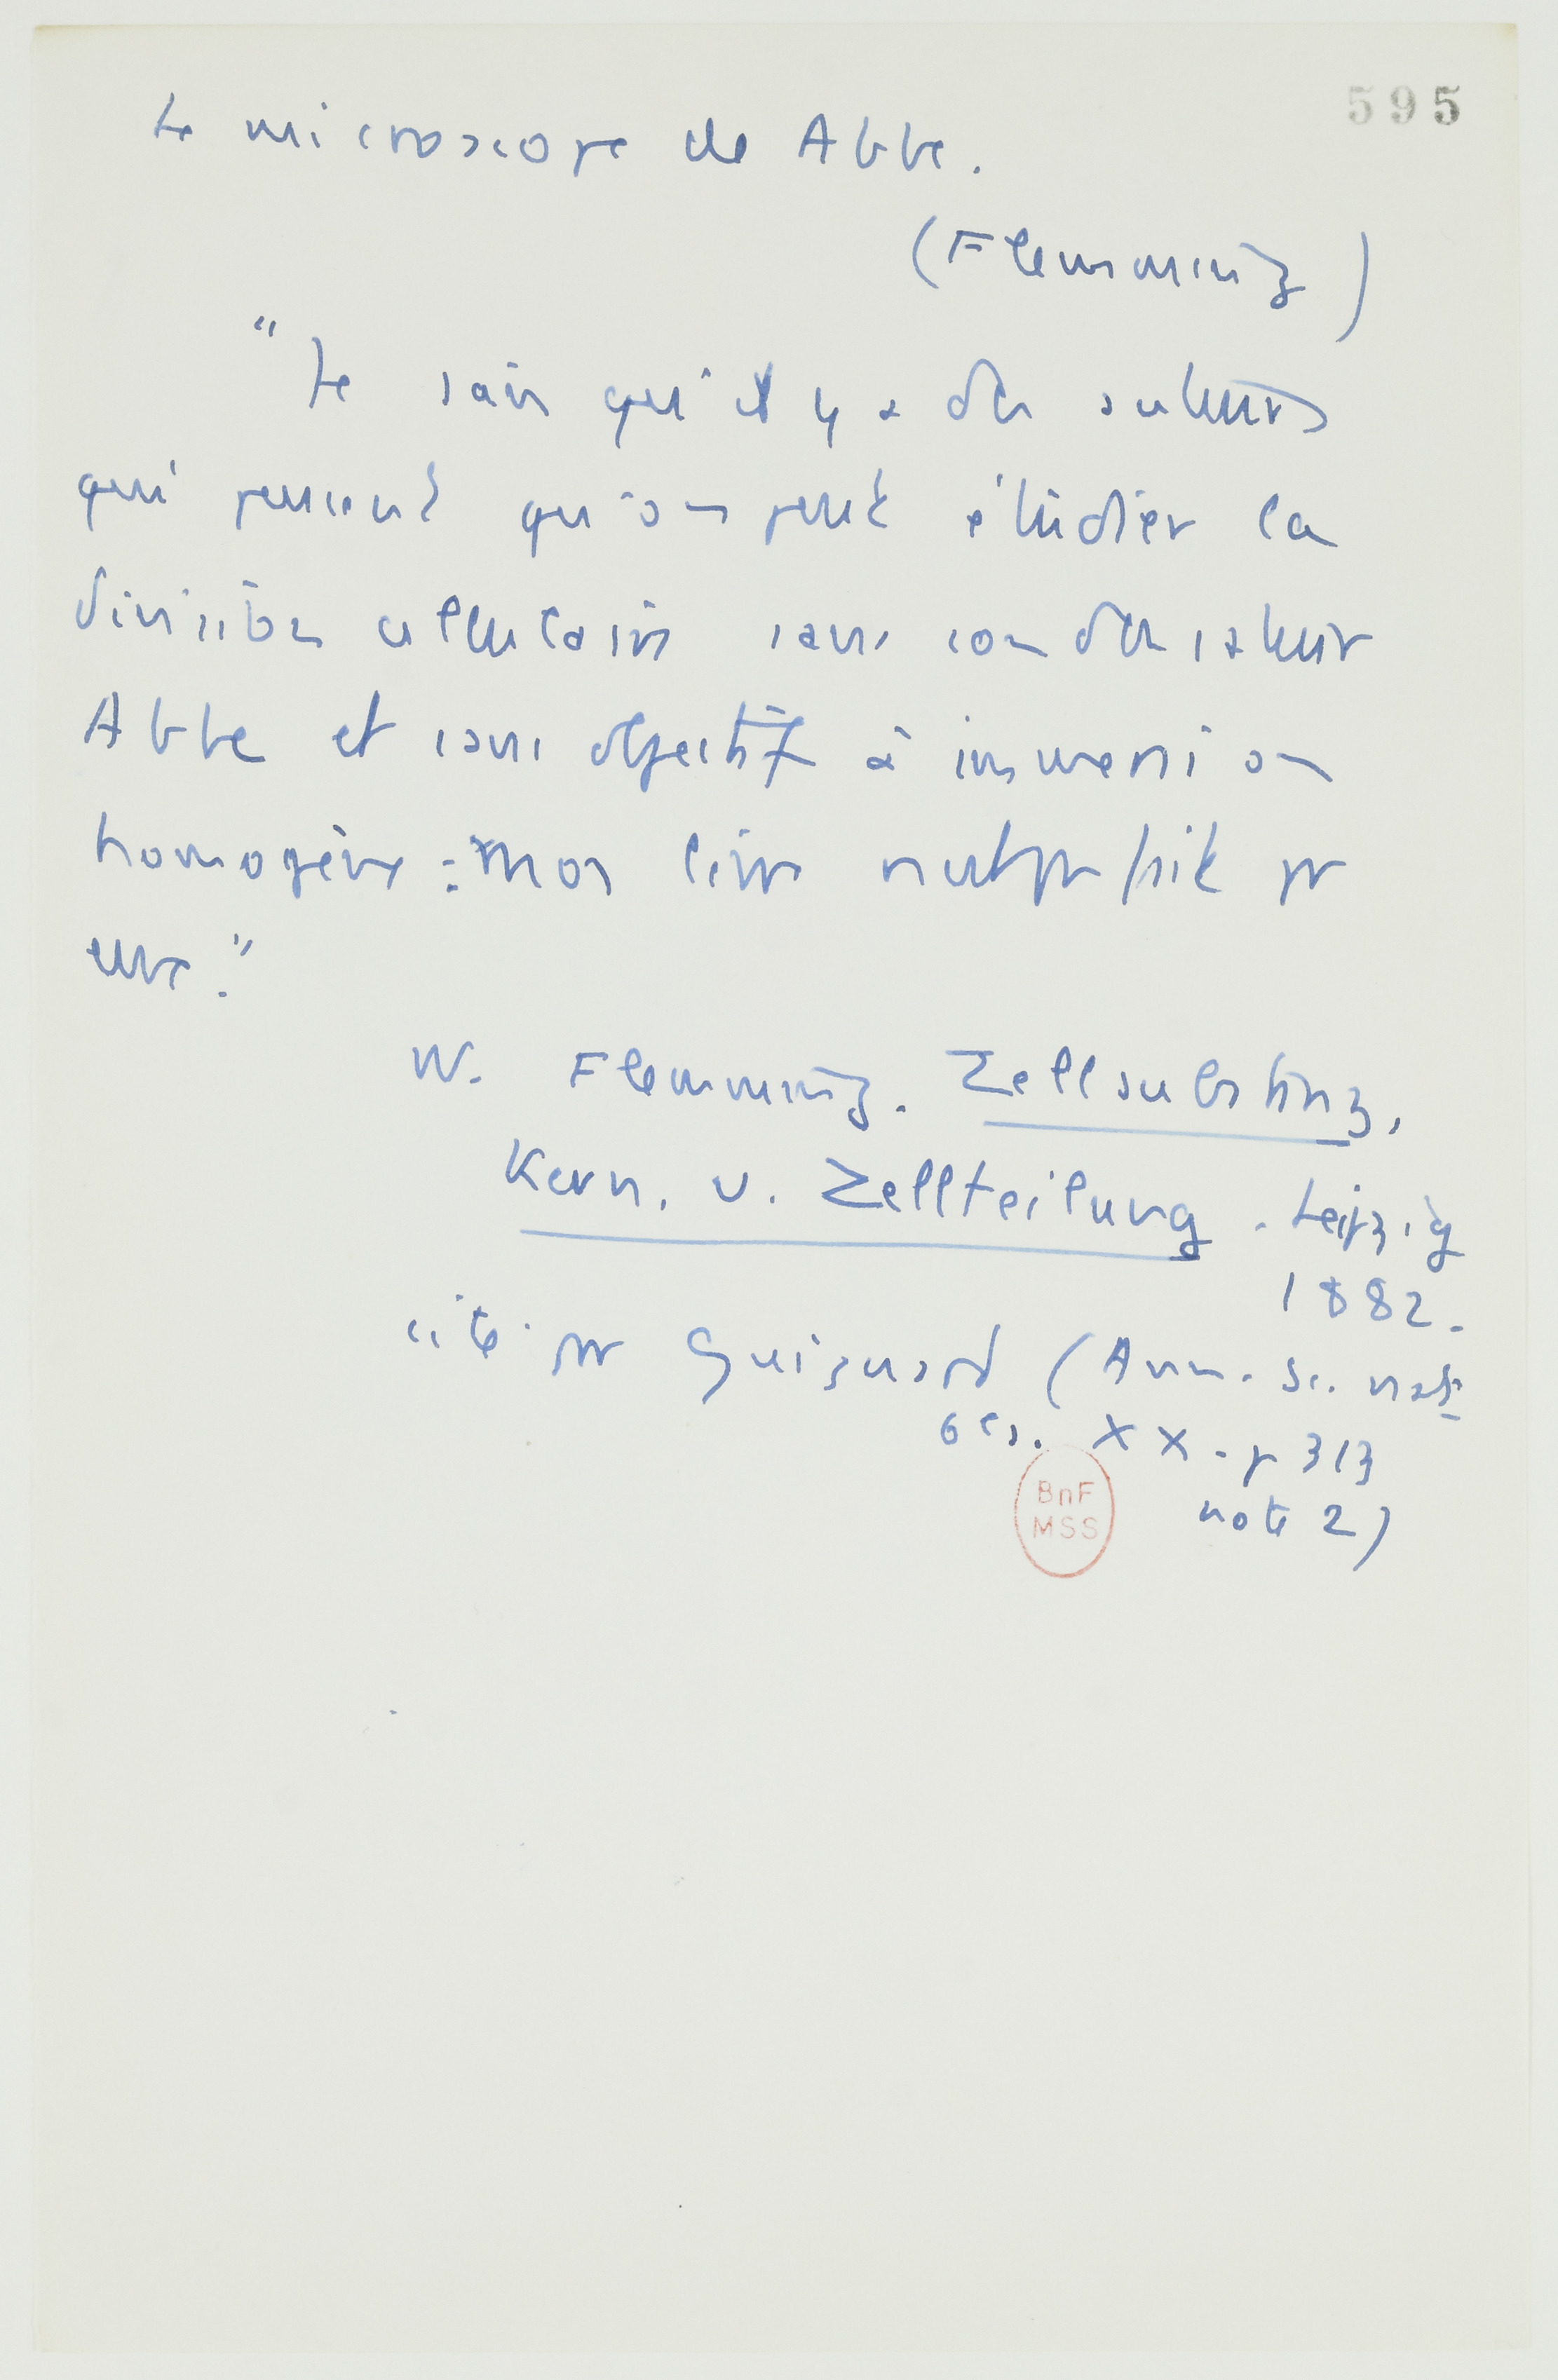 595
Le microscope de Abbe.
(Flemming)
"Je sais qu'il y a des auteurs
qui pensent qu'on peut étudier la
division cellulaire sans condensateur
Abbe et sans objectif à immersion
homogène : Mon livre n'est pas écrit pr
eux."
W. Flemming. Zellsubstanz,
Kern. u. Zellteilung. Leipzig
1882.
cité par Guignard (Ann. Sc. nat.
6e s. XX - p 313
note 2)
BnF
MSS